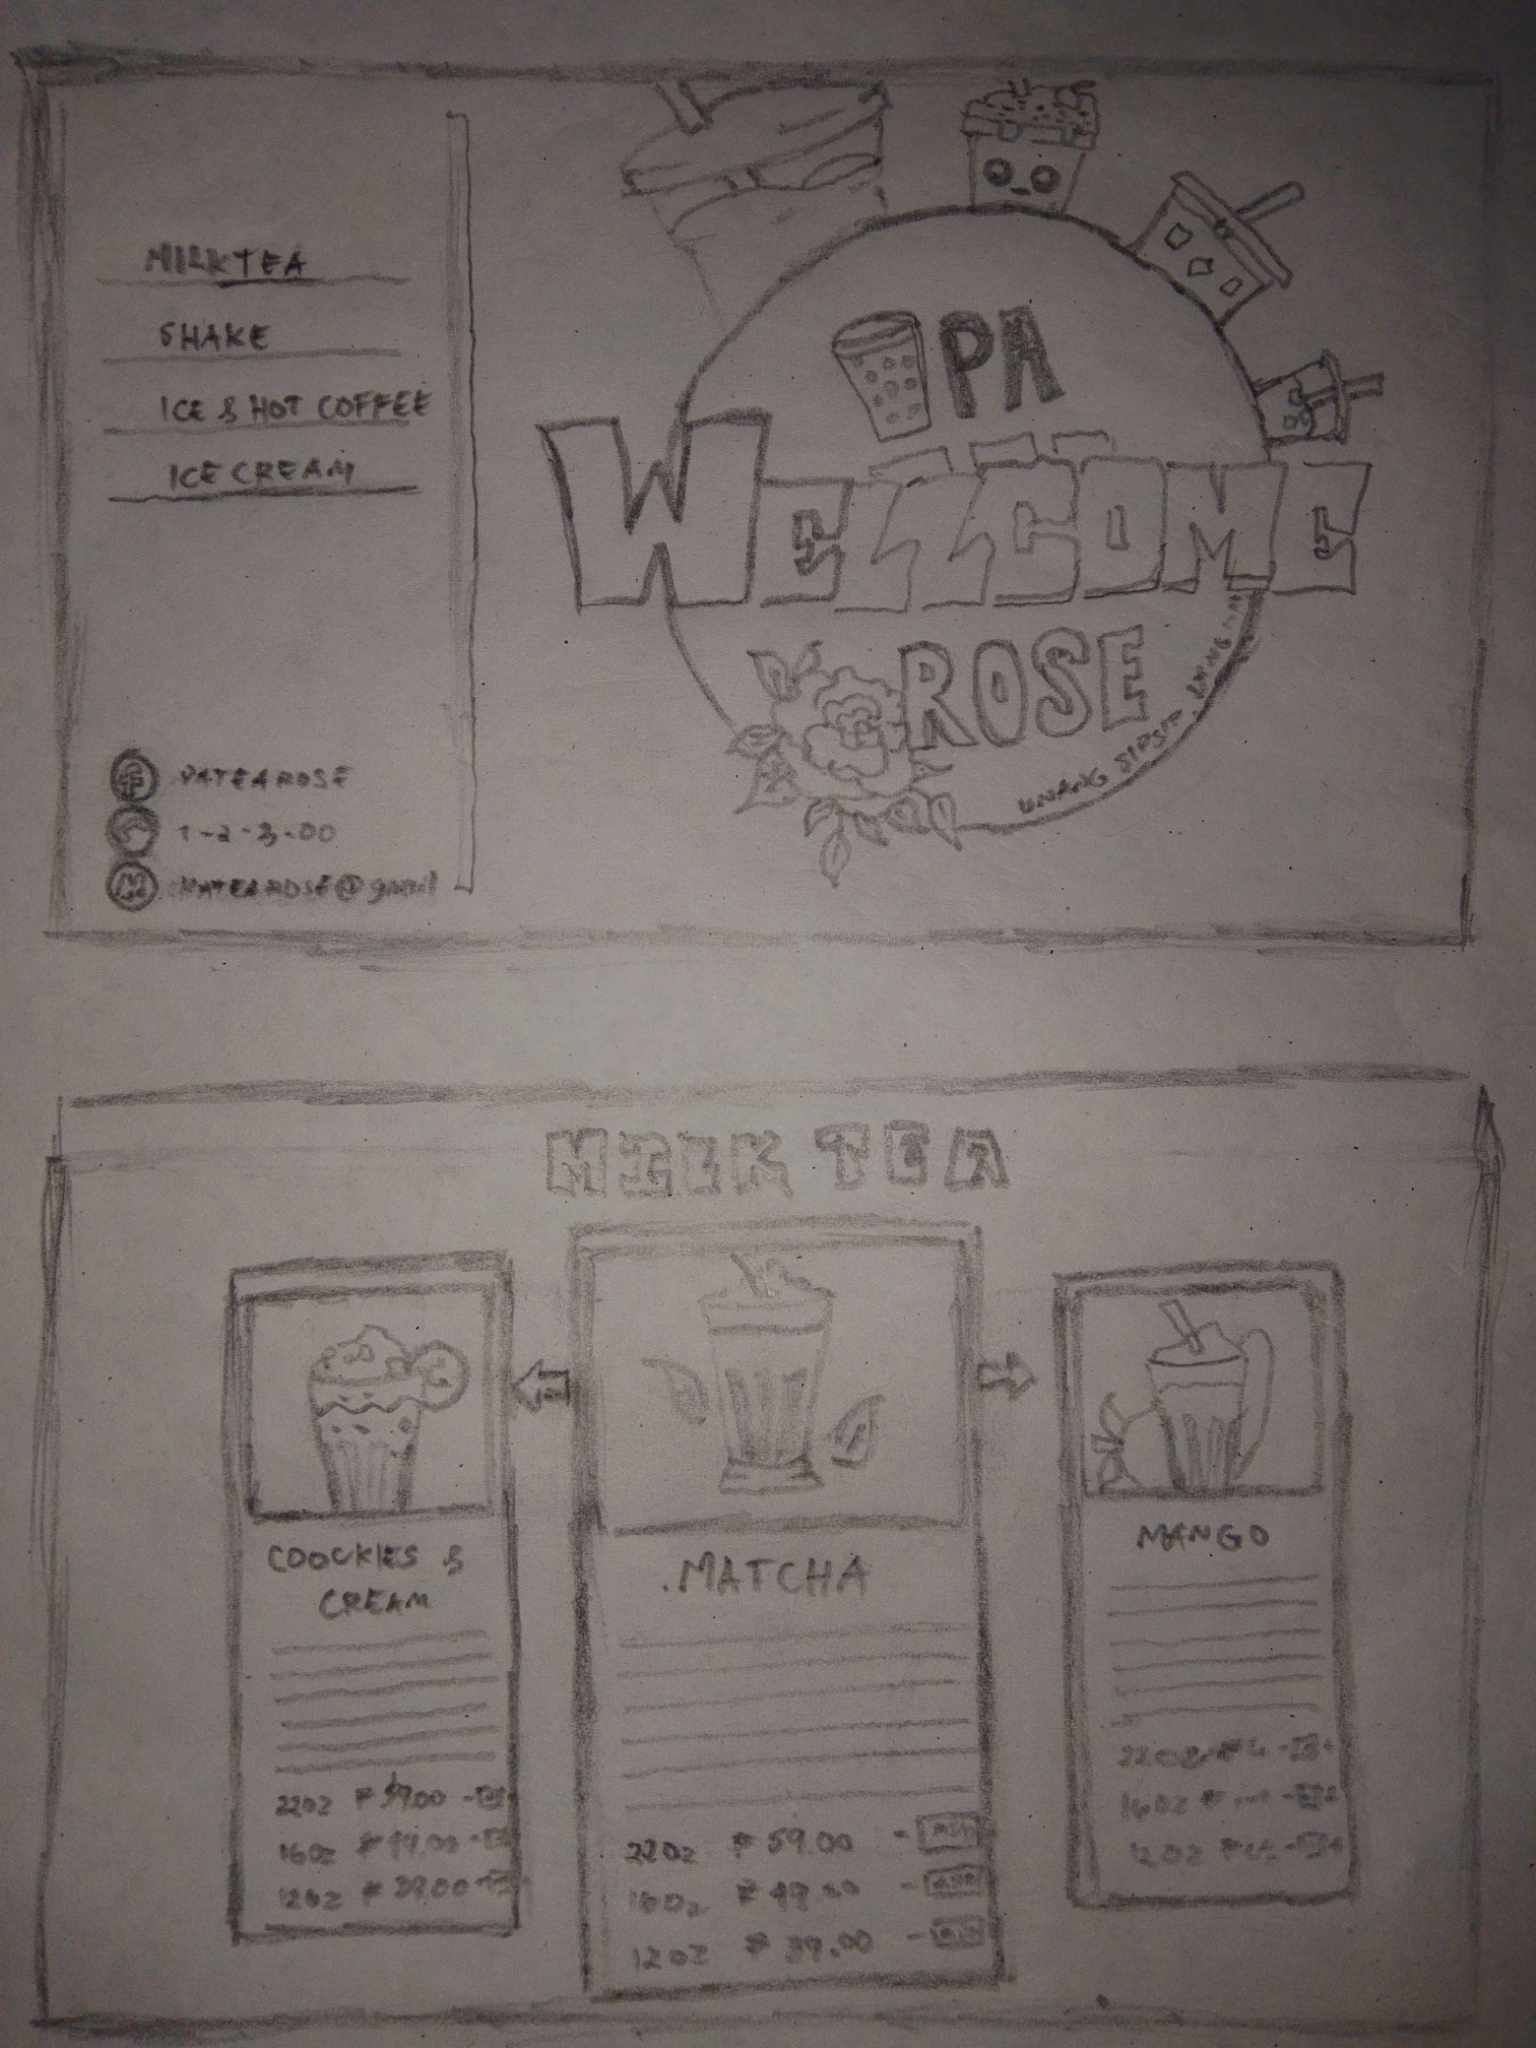 MILKTEA
SHAKE
ICE & HOT COFFEE
ICE CREAM
PATEAROSE
1-2-3-00
PATEAROSE@gmail
PA
WELLCOME
ROSE
UNANG SIPSIP,
MILK TEA
COOCKIES &
CREAM
22oz ₱ 59.00 -
16oz ₱ 49.00 -
12oz ₱ 39.00
MATCHA
22oz ₱ 59.00 -
16oz ₱ 49.00 -
12oz ₱ 39.00 -
MANGO
22oz
16oz ₱
12oz ₱